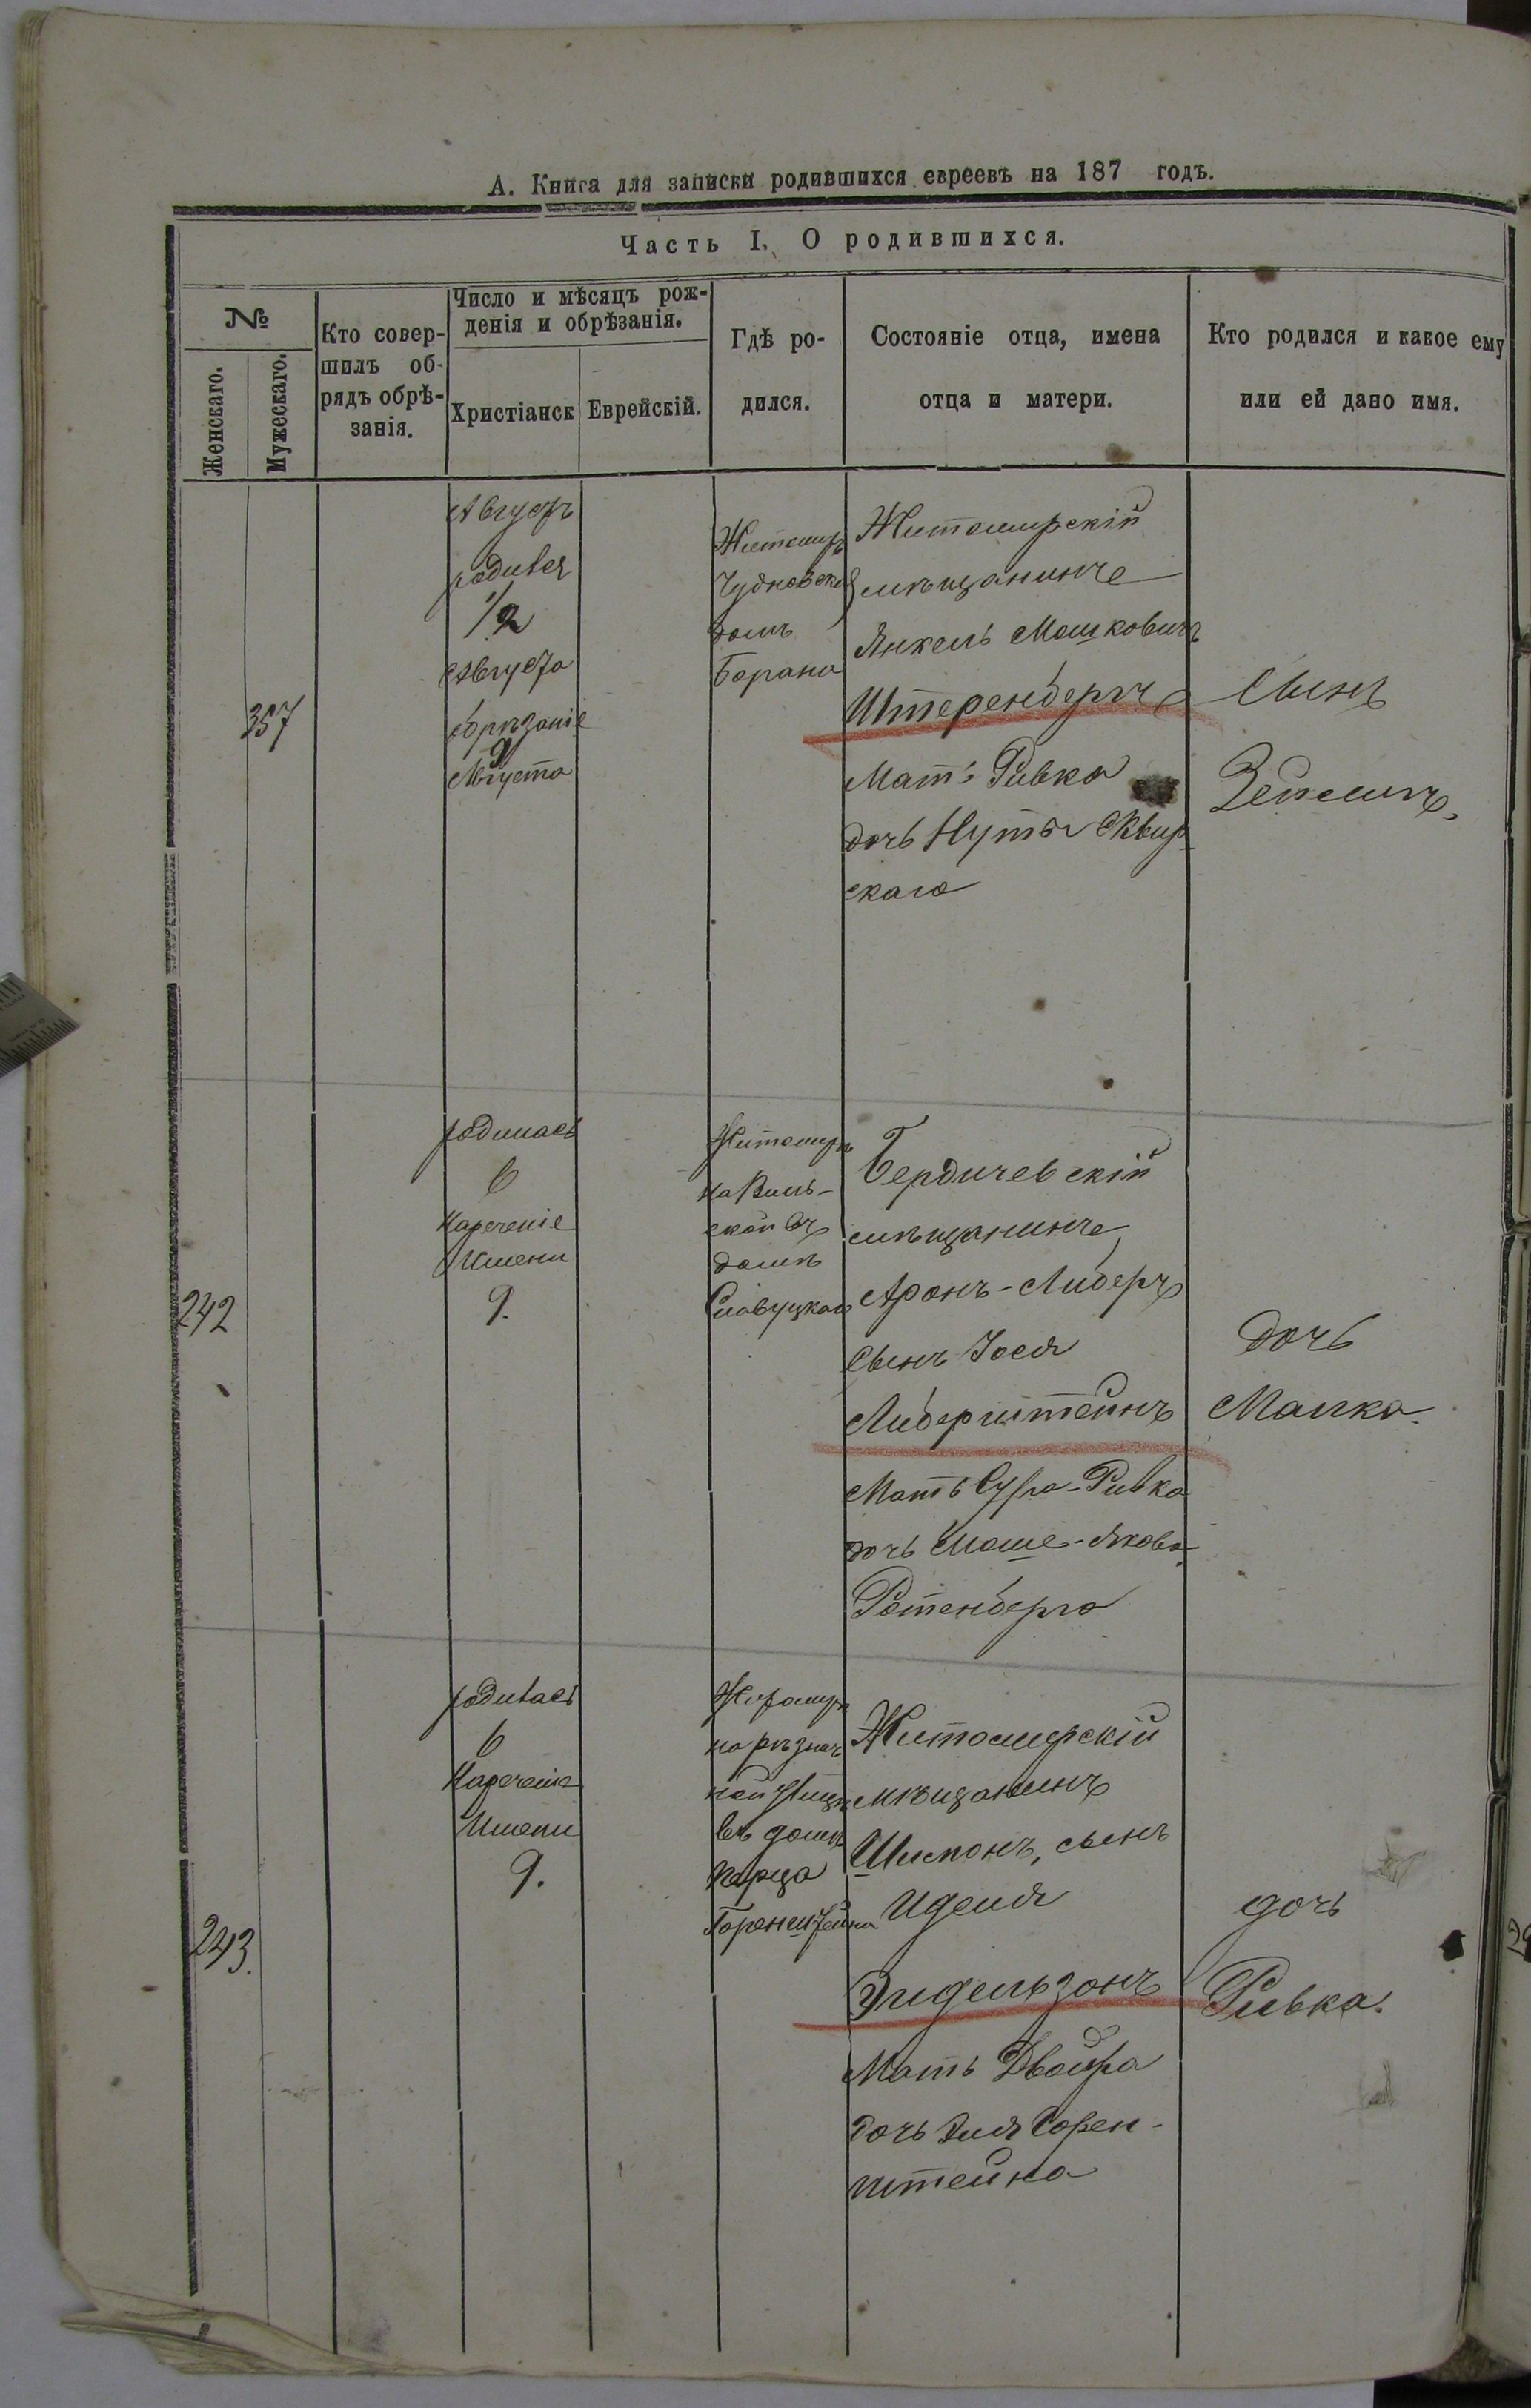 А. Книга для записки родившихся евреевъ на 187 годъ.
Часть I. О родившихся.
№
Женскаго.
Мужескаго.
Кто совер-
шилъ об-
рядъ обрѣ-
занія.
Число и мѣсяцъ рож-
денія и обрѣзанія.
Христіанск
Еврейскій.
Гдѣ ро-
дился.
Состояніе отца, имена
отца и матери.
Кто родился и какое ему
или ей дано имя.
357
Августъ
родился
Августа
обрѣзаніе
9
Августа
Житомиръ
Чудновская
домъ
Барана
Житомирскій
мѣщанинъ
Янкель Мошковичъ
Штеренбергъ
Мать Ривка
дочь Нуты Сквир
скаго
Сынъ
Зейликъ
242
родилась
6
Нареченіе
Имени
9.
Житомиръ
на Виль-
ской въ
домѣ
Славуцкаго
Бердичевскій
мѣщанинъ
Аронъ-Либеръ
Сынъ Іося
Либерштейнъ
Мать Сура-Ривка
дочь Моше-Якова
Ротенберга
дочь
Малка.
243.
родилась
6
Нареченіе
Имени
9.
Житомиръ
на рѣзнич
ной улицѣ
въ домѣ
Горенштейна
Житомирскій
мѣщанинъ
Шимонъ, сынъ
Иделя
Эйдельзонъ
Мать Двойра
дочь Эля Горен-
штейна
дочь
Ривка.